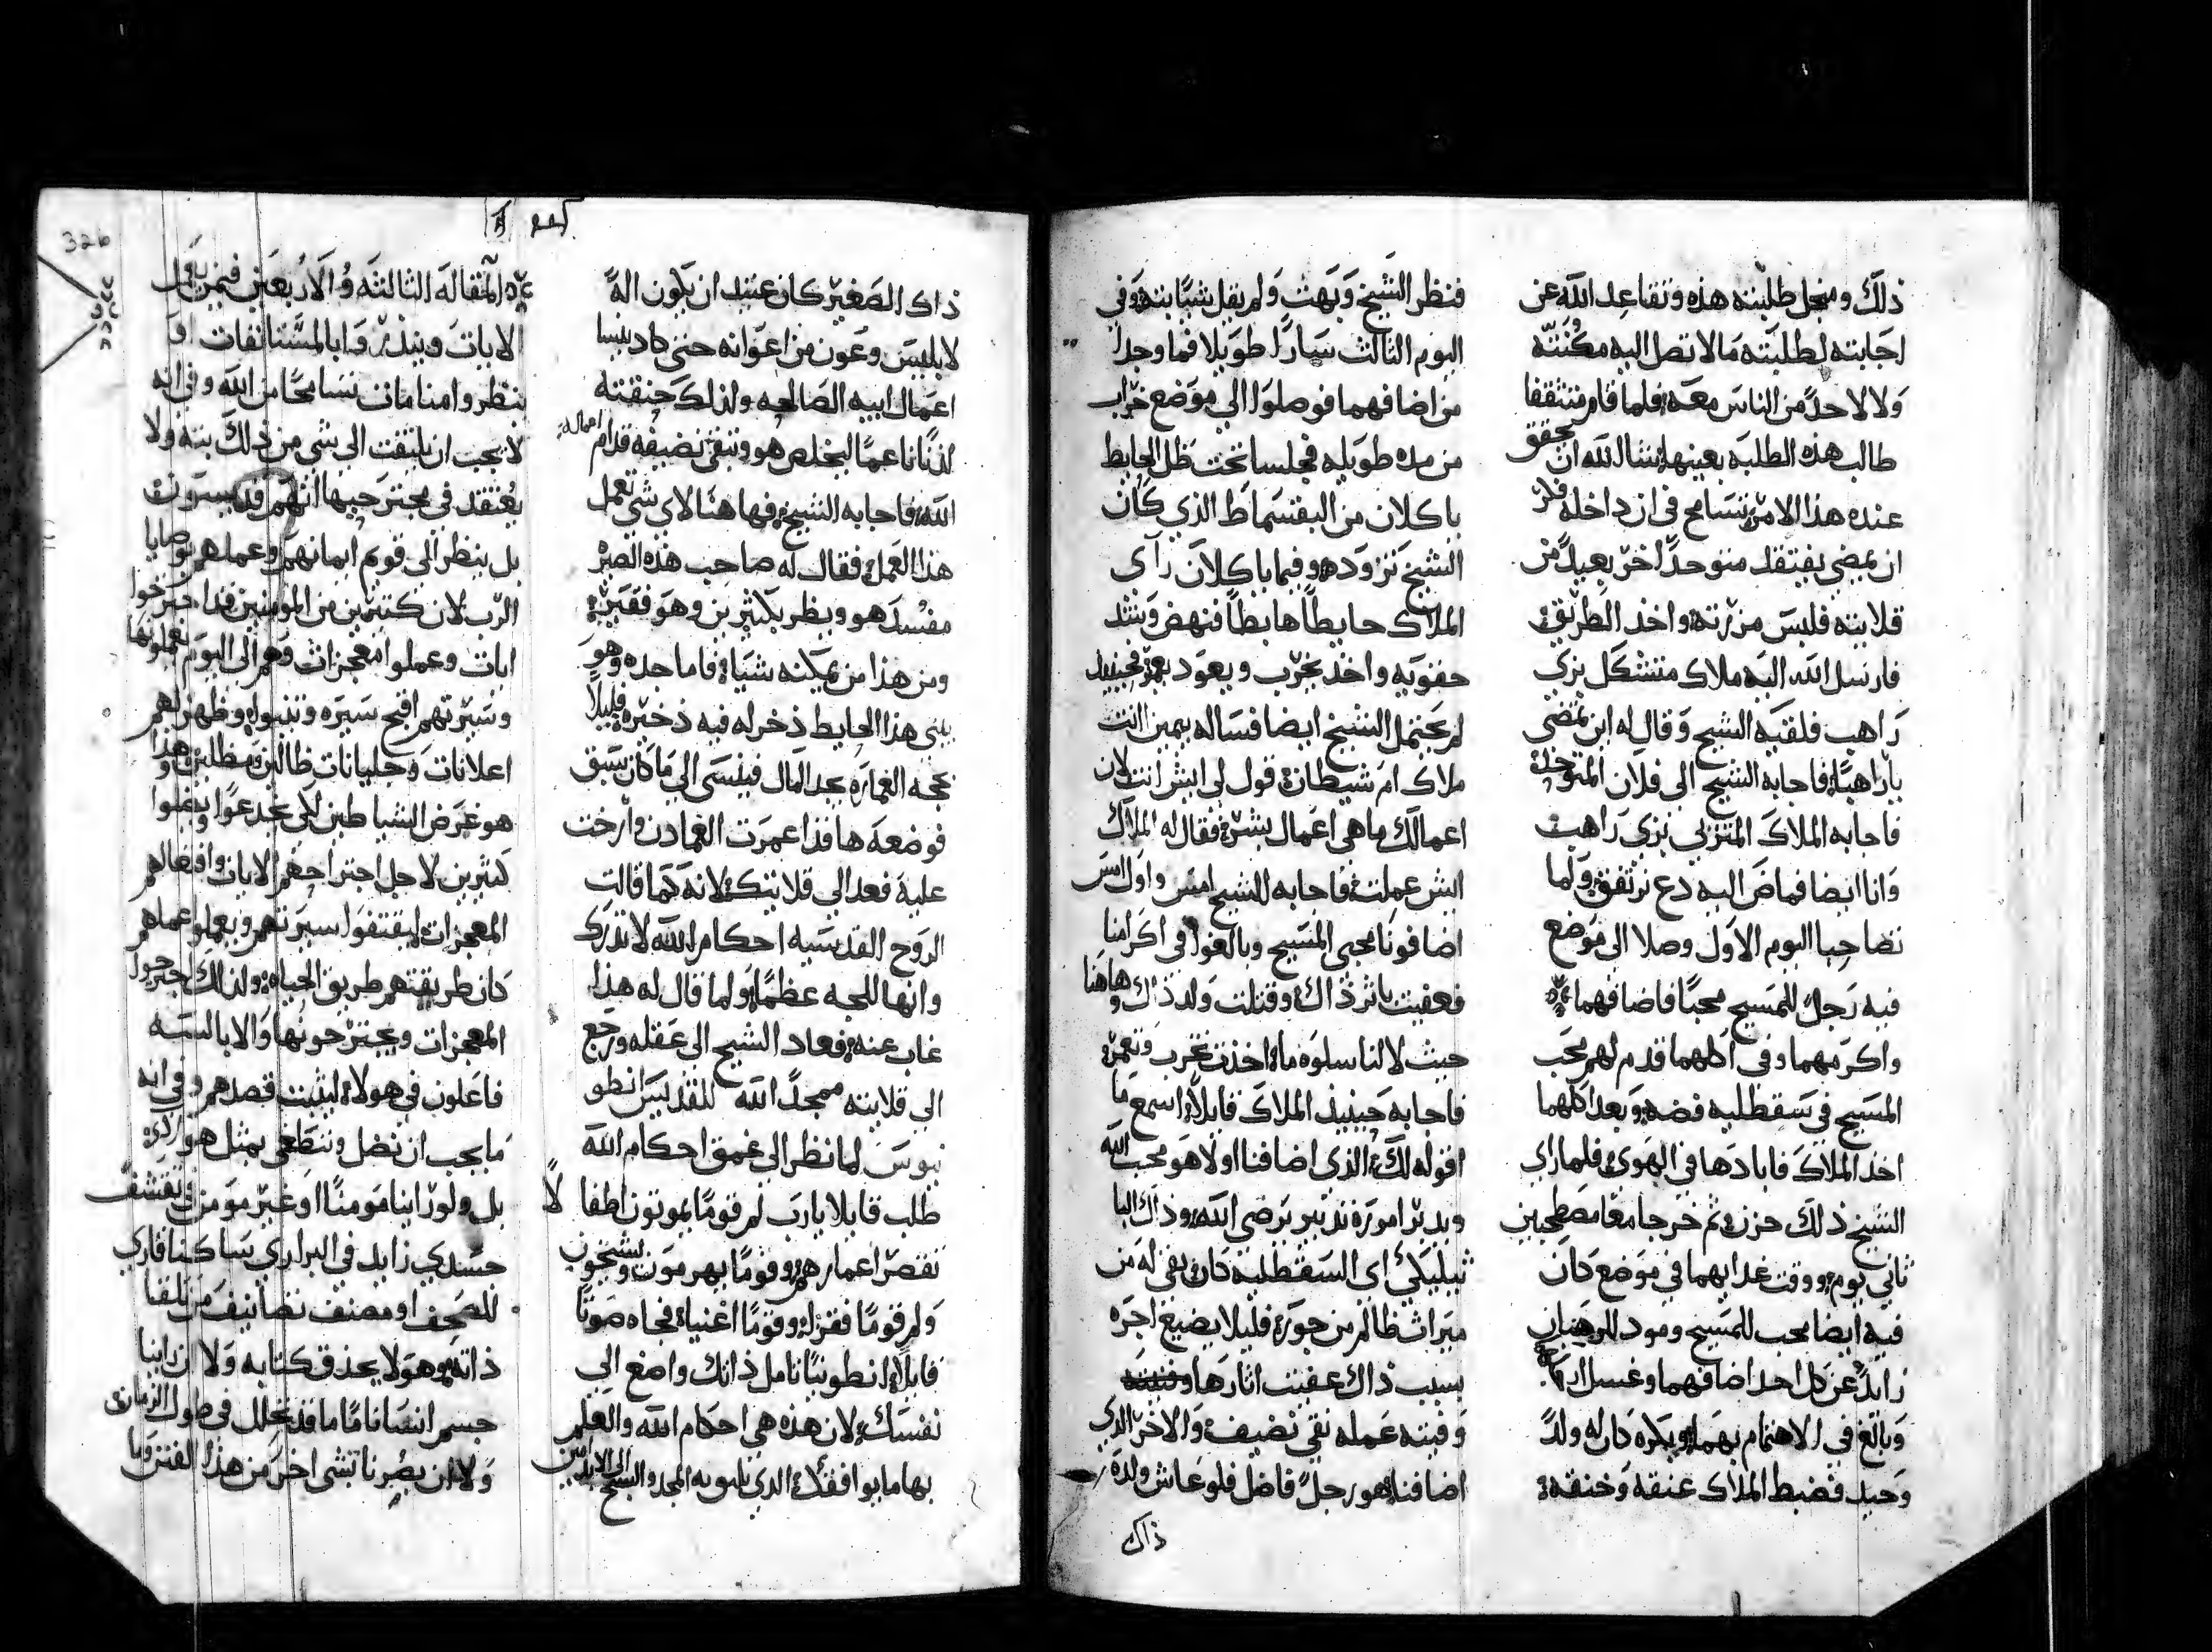 ذلك ومنجل طلبته هذه وتقاعد الله عن
اجابته لطلبته مالا تصل اليه مكنته
ولا لاحد من الناس معه فلما قام متثقفا
طالب هذه الطلبه بعينها نسال الله ان تحقق
عنده هذا الامر تسامح في ان داخله فكر
ان يمضي يفتقد متوحدا اخر بعيد من
قلايته فلبس مزرته واخذ الطريق
فارسل الله اليه ملاك متشكل بزي
راهب فلقيه الشيخ وقال له اين تمضي
يا راهب فاجابه الشيخ الى فلان المتوحد
فاجابه الملاك المتزيي بزي راهب
وانا ايضا فماض اليه دع نرتفق ولما
تصاحبا اليوم الاول وصلا الى موضع
فيه رجل للمسيح محبا فاضافهما
واكرمهما وفي اكلهما قدم لهم محب
المسيح في سقطليه فضه وبعد اكلهما
اخذ الملاك فابادها في الهوى فلما راي
الشيخ ذلك حزن ثم خرجا معا مصطحبين
ثاني يوم ووقت غدايهما في موضع كان
فيه ايضا محب للمسيح ومود للرهبان
زايد عن كل احد اضافهما وغسل ارجلهما
وبالغ في الاهتمام بهما وبكره كان له ولد
وحيد فضبط الملاك عنقه وخنقه
فنظر الشيخ وبهت ولم يقل شيا بته وفي
اليوم الثالث سارا طويلا فما وجدا
من اضافهما فوصلوا الي موضع خراب
من مده طويله فجلسا تحت ظل الحايط
ياكلان من البقسماط الذي كان
الشيخ تزوده وفيما ياكلان رآى
الملاك حايطا هابطا فنهض وشد
حقويه واخذ يخرب ويعود يعمر فحينيذ
لم يحتمل الشيخ ايضا فساله بيمين انت
ملاك ام شيطان قول لي ايش انت لان
اعمالك ما هي اعمال بشر فقال له الملاك
ايش عملت فاجابه الشيخ امس واول امس
اضافونا محبي المسيح وبالغوا في اكرامنا
فعفيت ياثر ذاك وقتلت ولد ذاك وهاهنا
حيث لا لنا سلوه ما اخذت تخرب وتعمر
فاجابه حينيذ الملاك قايلا اسمع ما
اقوله لك الذي اضافنا اولا هو محب الله
ويدبر اموره تدبير يرضي الله وذاك البا
ثيليكي اي السقطليه كان بقي له من
ميراث ظالم من جوره فليلا يضيع اجره
بسبب ذاك عفيت اثارها
وفيته عمله نقي نضيف والاخر الذي
اضافنا هو رجل فاضل فلو عاش ولده
ذاك
ذاك الصغير كان عتيد ان يكون اله
لابليس وعون من اعوانه حتى كاد ينسا
اعمال ابيه الصالحه ولذلك خنقته
لذنا ناعما ليخلص هو وتبقى نضيفه قدام اعماله
الله فاجابه الشيخ فها هنا لاي شي تعمل
هذا العمل فقال له صاحب هذه الصبر
مفسد هو ويظر بكثيرين وهو فقير
ومن هذا من يمكنه شيا فاما جده وهو
يبني هذا الحايط ذخر له فيه ذخيره قليلا
بحجه العماره يجد المال فينسى الي ما كان سبق
فوضعه ها قد اعمرت العمادن وارخت
عليه فعد الي قلايتك لانه كما قالت
الروح القدسيه احكام الله لا تدرك
وانها للجه عظما ولما قال له هذا
غاب عنه فعاد الشيخ الى عقله ورجع
الى قلايته ممجدا الله للقديس انطو
نيوس لما نظر الي عمق احكام الله
طلب قايلا يارب لم قوما يموتون اطفالا
نقصر اعمارهم وقوما بهرموت ويشيخون
ولم قوما فقرا وقوما اغنيا فجاه صوتا
قايلا انطونيا تامل ذاتك واضع الي
نفسك لان هذه هي احكام الله والعلم
بها ما يوافقك الذي يليق به المجد والسبح الى الابد امين
المقاله الثالثه والاربعين فيمن يعمل
الايات وينذر وايا بالمستانفات او
ينظروا منامات تسامحا من الله وفي انه
لا يجب ان يلتفت الي شي من ذلك بته ولا
يعتقد في مجترحيها انهم قديسون
بل ينظر الى قويم ايمانهم وعملهم بوصايا
الرب لان كثيرين من المومنين قد اجترحوا
ايات وعملوا معجزات وهم الى اليوم يعملونها
وسيرتهم اقبح سيره وتنبوا وظهر لهم
اعلانات وجليانات ظالين ومظلين وهذا
هو غرض الشياطين لكي يخدعوا ويضلوا
كثيرين لاجل اجتراحهم الايات وافعالهم
المعجزات ليقتفوا سيرتهم ويعملوا عملهم
كان طريقتهم طريق الحياه ولذلك اجترحوا
المعجزات ويجترحونها والاباالسته
فاعلون في هولاء ليثبت قصدهم وفي انه
ما يجب ان نضل وننطغي بمثل هولاي
بل ولو راينا مومنا او غير مومن في تقشف
جسدي زايد في البراري ساكنا قاري
للصحف او مصنف تصانيف من تلقا
ذاته وهو لا يحذق كتابه ولا ان راينا
جسم انسانا ما ما قد تحلل في طول الزمان
ولا ان بصرنا بشي اخر من هذا الفن وما